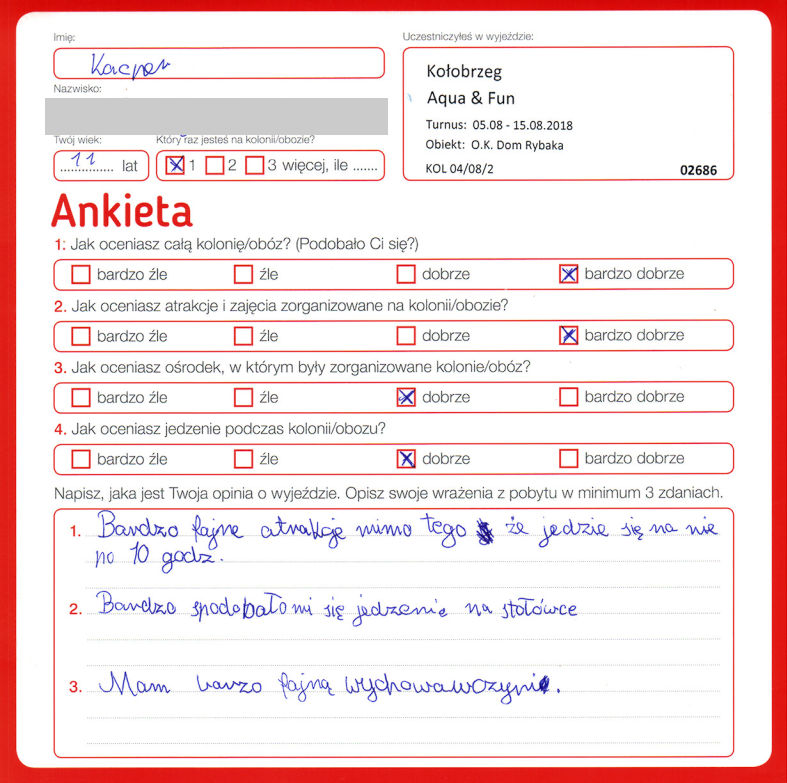 Imię:
Kacper
Nazwisko:
Twój wiek:
11 lat
Który raz jesteś na kolonii/obozie?
1 2 3 więcej, ile .......
Uczestniczyłeś w wyjeździe:
Kołobrzeg
Aqua & Fun
Turnus: 05.08 - 15.08.2018
Obiekt: O.K. Dom Rybaka
KOL 04/08/2 02686
Ankieta
1. Jak oceniasz całą kolonię/obóz? (Podobało Ci się?)
bardzo źle źle dobrze bardzo dobrze
2. Jak oceniasz atrakcje i zajęcia zorganizowane na kolonii/obozie?
bardzo źle źle dobrze bardzo dobrze
3. Jak oceniasz ośrodek, w którym były zorganizowane kolonie/obóz?
bardzo źle źle dobrze bardzo dobrze
4. Jak oceniasz jedzenie podczas kolonii/obozu?
bardzo źle źle dobrze bardzo dobrze
Napisz, jaka jest Twoja opinia o wyjeździe. Opisz swoje wrażenia z pobytu w minimum 3 zdaniach.
1. Bardzo fajne atrakcje mimo tego że jedzie się na nie
po 10 godz.
2. Bardzo spodobało mi się jedzenie na stołówce
3. Mam barzo fajną wychowawczyni.